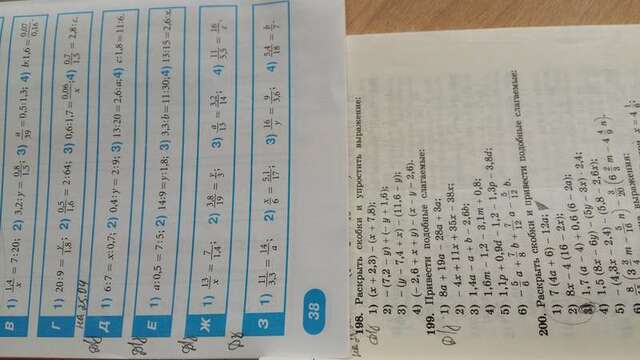 В 1) 1,4/x = 7:20; 2) 3,2:y = 0,8/1,5; 3) a/39 = 0,5:1,3; 4) b:1,6 = 0,07/0,16.
Г 1) 20:9 = y/1,8; 2) 0,5/1,6 = 2:64; 3) 0,6:1,7 = 0,06/x; 4) 0,7/1,5 = 2,8:c.
на 25.04
Д 1) 6:7 = x:0,7; 2) 0,4:y = 2:9; 3) 13:20 = 2,6:a; 4) c:1,8 = 11:6.
Е 1) a:0,5 = 7:5; 2) 14:9 = y:1,8; 3) 3,3:b = 11:30; 4) 13:15 = 2,6:x.
Ж 1) 13/x = 7/1,4; 2) 3,8/19 = y/3; 3) a/13 = 3,2/14; 4) 11/5,5 = 16/c.
З 1) 11/3,3 = 14/a; 2) x/6 = 5,1/17; 3) 16/y = 9/3,6; 4) 5,4/18 = b/7.
38
198. Раскрыть скобки и упростить выражение:
1) (x + 2,3) − (x + 7,8);
2) −(7,2 − y) + (− y + 1,6);
3) −(y − 7,4 + x) − (11,6 − y);
4) (− 2,6 + x + y) − (x − y − 2,6).
199. Привести подобные слагаемые:
1) 8a + 19a − 28a + 3a;
2) − 4x + 11x + 35x − 38x;
3) 1,4a − a + b − 2,6b;
4) 1,6m − 1,2 − 3,1m + 0,8;
5) 1,1p + 0,9d − 1,2 − 1,3p − 3,8d;
6) −5/6 a + 7/8 b + 7/12 a − 5/12 b.
200. Раскрыть скобки и привести подобные слагаемые:
1) 7 (4a + 6) − 12a;
2) 8x − 4 (16 − 2x);
3) 1,7 (a − 4) + 0,6 (6 − 2a);
4) 1,5 (8x − 6y) − (5y − 3x) · 2,4;
5) −(4,3x − 2,4) − (5,8 − 2,6x);
6) 8/15 (3 3/4 m − 5/16 n) − 3/20 (6 2/3 m − 4 4/9 n).
выражения: